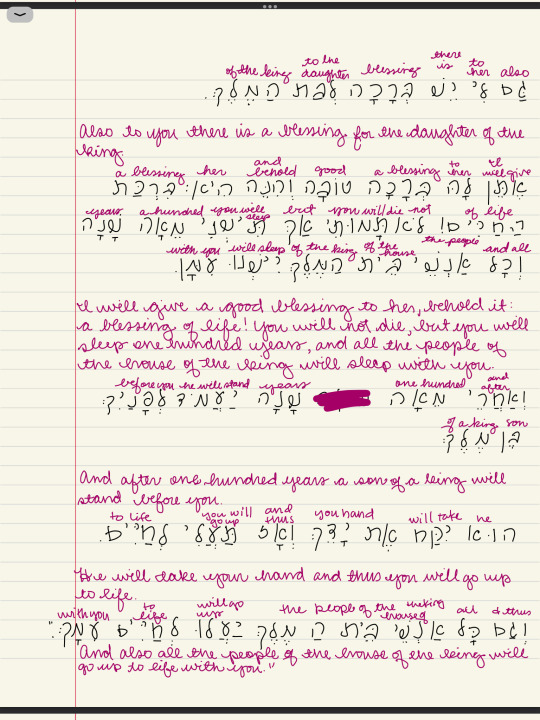 of the king to the daughter blessing there is to her also
גַם לִי יֵשׁ בְּרָכָה לְבַת הַמֶּלֶךְ.
Also to you there is a blessing for the daughter of the
king.
a blessing her and behold good a blessing to her I'll will give
אֶתֵּן לָהּ בְּרָכָה טוֹבָה וְהִנֵּה הִיא: בִּרְכַּת
years. a hundred you will sleep but you will die not of life
הַחַיִּים! לֹא תָּמוּתִי אַךְ תִּישְׁנִי מֵאָה שָׁנָה
with you will sleep of the king of the house the people and all
וְכָל אַנְשֵׁי בֵּית הַמֶּלֶךְ יִישְׁנוּ עִמָּךְ.
I will give a good blessing to her, behold it:
a blessing of life! You will not die, but you will
sleep one hundred years, and all the people of
the house of the king will sleep with you.
before you he will stand years one hundred and after
וְאַחֲרֵי מֵאָה שָׁנָה יַעֲמֹד לְפָנַיִךְ
of a king son
בֶּן מֶלֶךְ.
And after one hundred years a son of a king will
stand before you.
to life you will go up and thus you hand will take he
הוּא יִקַּח אֶת יָדֵךְ וְאָז תַּעֲלִי לְחַיִּים.
He will take your hand and thus you will go up
to life.
with you to life will go up the people of the house all & thus
וְגַם כָּל אַנְשֵׁי בֵּית הַמֶּלֶךְ יַעֲלוּ לְחַיִּים עִמָּךְ."
And also all the people of the house of the king will
go up to life with you."